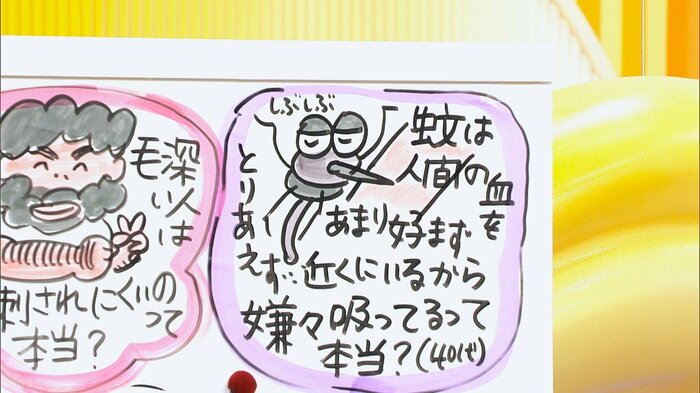 毛深
い人
は
刺されにくいの
って
本当？
しぶしぶ
蚊は
人間の
血を
あまり好まず
とりあ
えず近くにいるから
嫌々吸ってるって
本当？(40代)